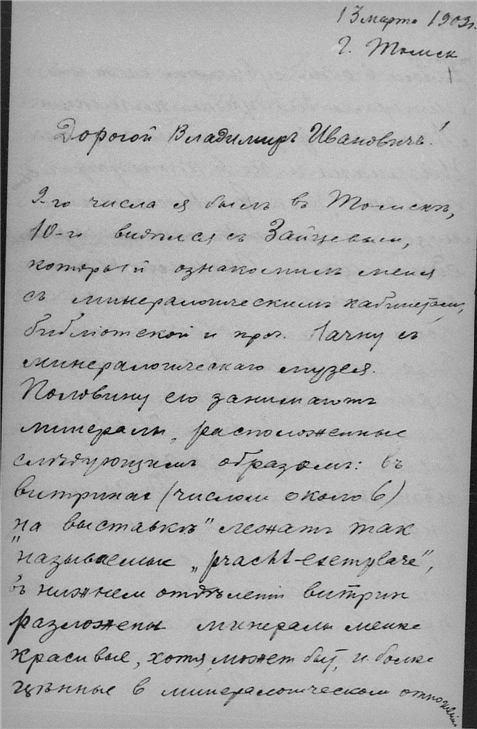 13 марта 1903 г.
г. Томск
Дорогой Владимиръ Ивановичъ!
9-го числа я былъ въ Томскѣ,
10-го видѣлся съ Зайцевым,
который ознакомилъ меня
съ минералогическимъ кабинетом,
библіотекой и проч. Начну съ
минералогическаго музея.
Половину его занимаютъ
минералы, расположенные
слѣдующимъ образомъ: въ
витринах (числом около 6)
на „выставкѣ" лежатъ так
называемые „pracht-exemplare",
въ нижнем отдѣленіи витрин
разложены минералы менѣе
красивые, хотя может быть, и болѣе
цѣнные в минералогическом отношеніи